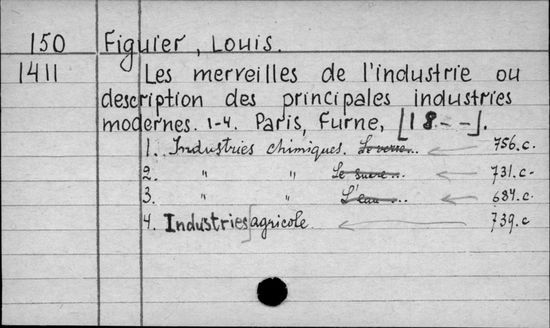 150 Figuier, Louis.
1411 Les merveilles de l'industrie ou
description des principales industries
modernes. 1-4. Paris, Furne, [18--].
1. Industries chimiques. Le verre... 756.c.
2. " " Le sucre... 731.c.
3. " " L'eau... 684.c.
4. Industries agricole 739.c